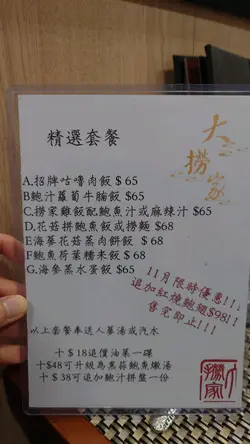 大撈家
精選套餐
A.招牌咕嚕肉飯 $65
B鮑汁蘿蔔牛腩飯 $65
C.撈家雞飯配鮑魚汁或麻辣汁 $65
D.花菇拼鮑魚飯或撈麵 $68
E海蔘花菇蒸肉餅飯 $68
F鮑魚荷葉糯米飯 $68
G.海參蒸水蛋飯 $65
11月限時優惠!!!
追加紅燒鮑翅$98!!
售完即止!!!
以上套餐奉送人蔘湯或汽水
+$18追價油菜一碟
+$48可升級為黑蒜鮑魚燉湯
+$38可追加鮑汁拼盤一份